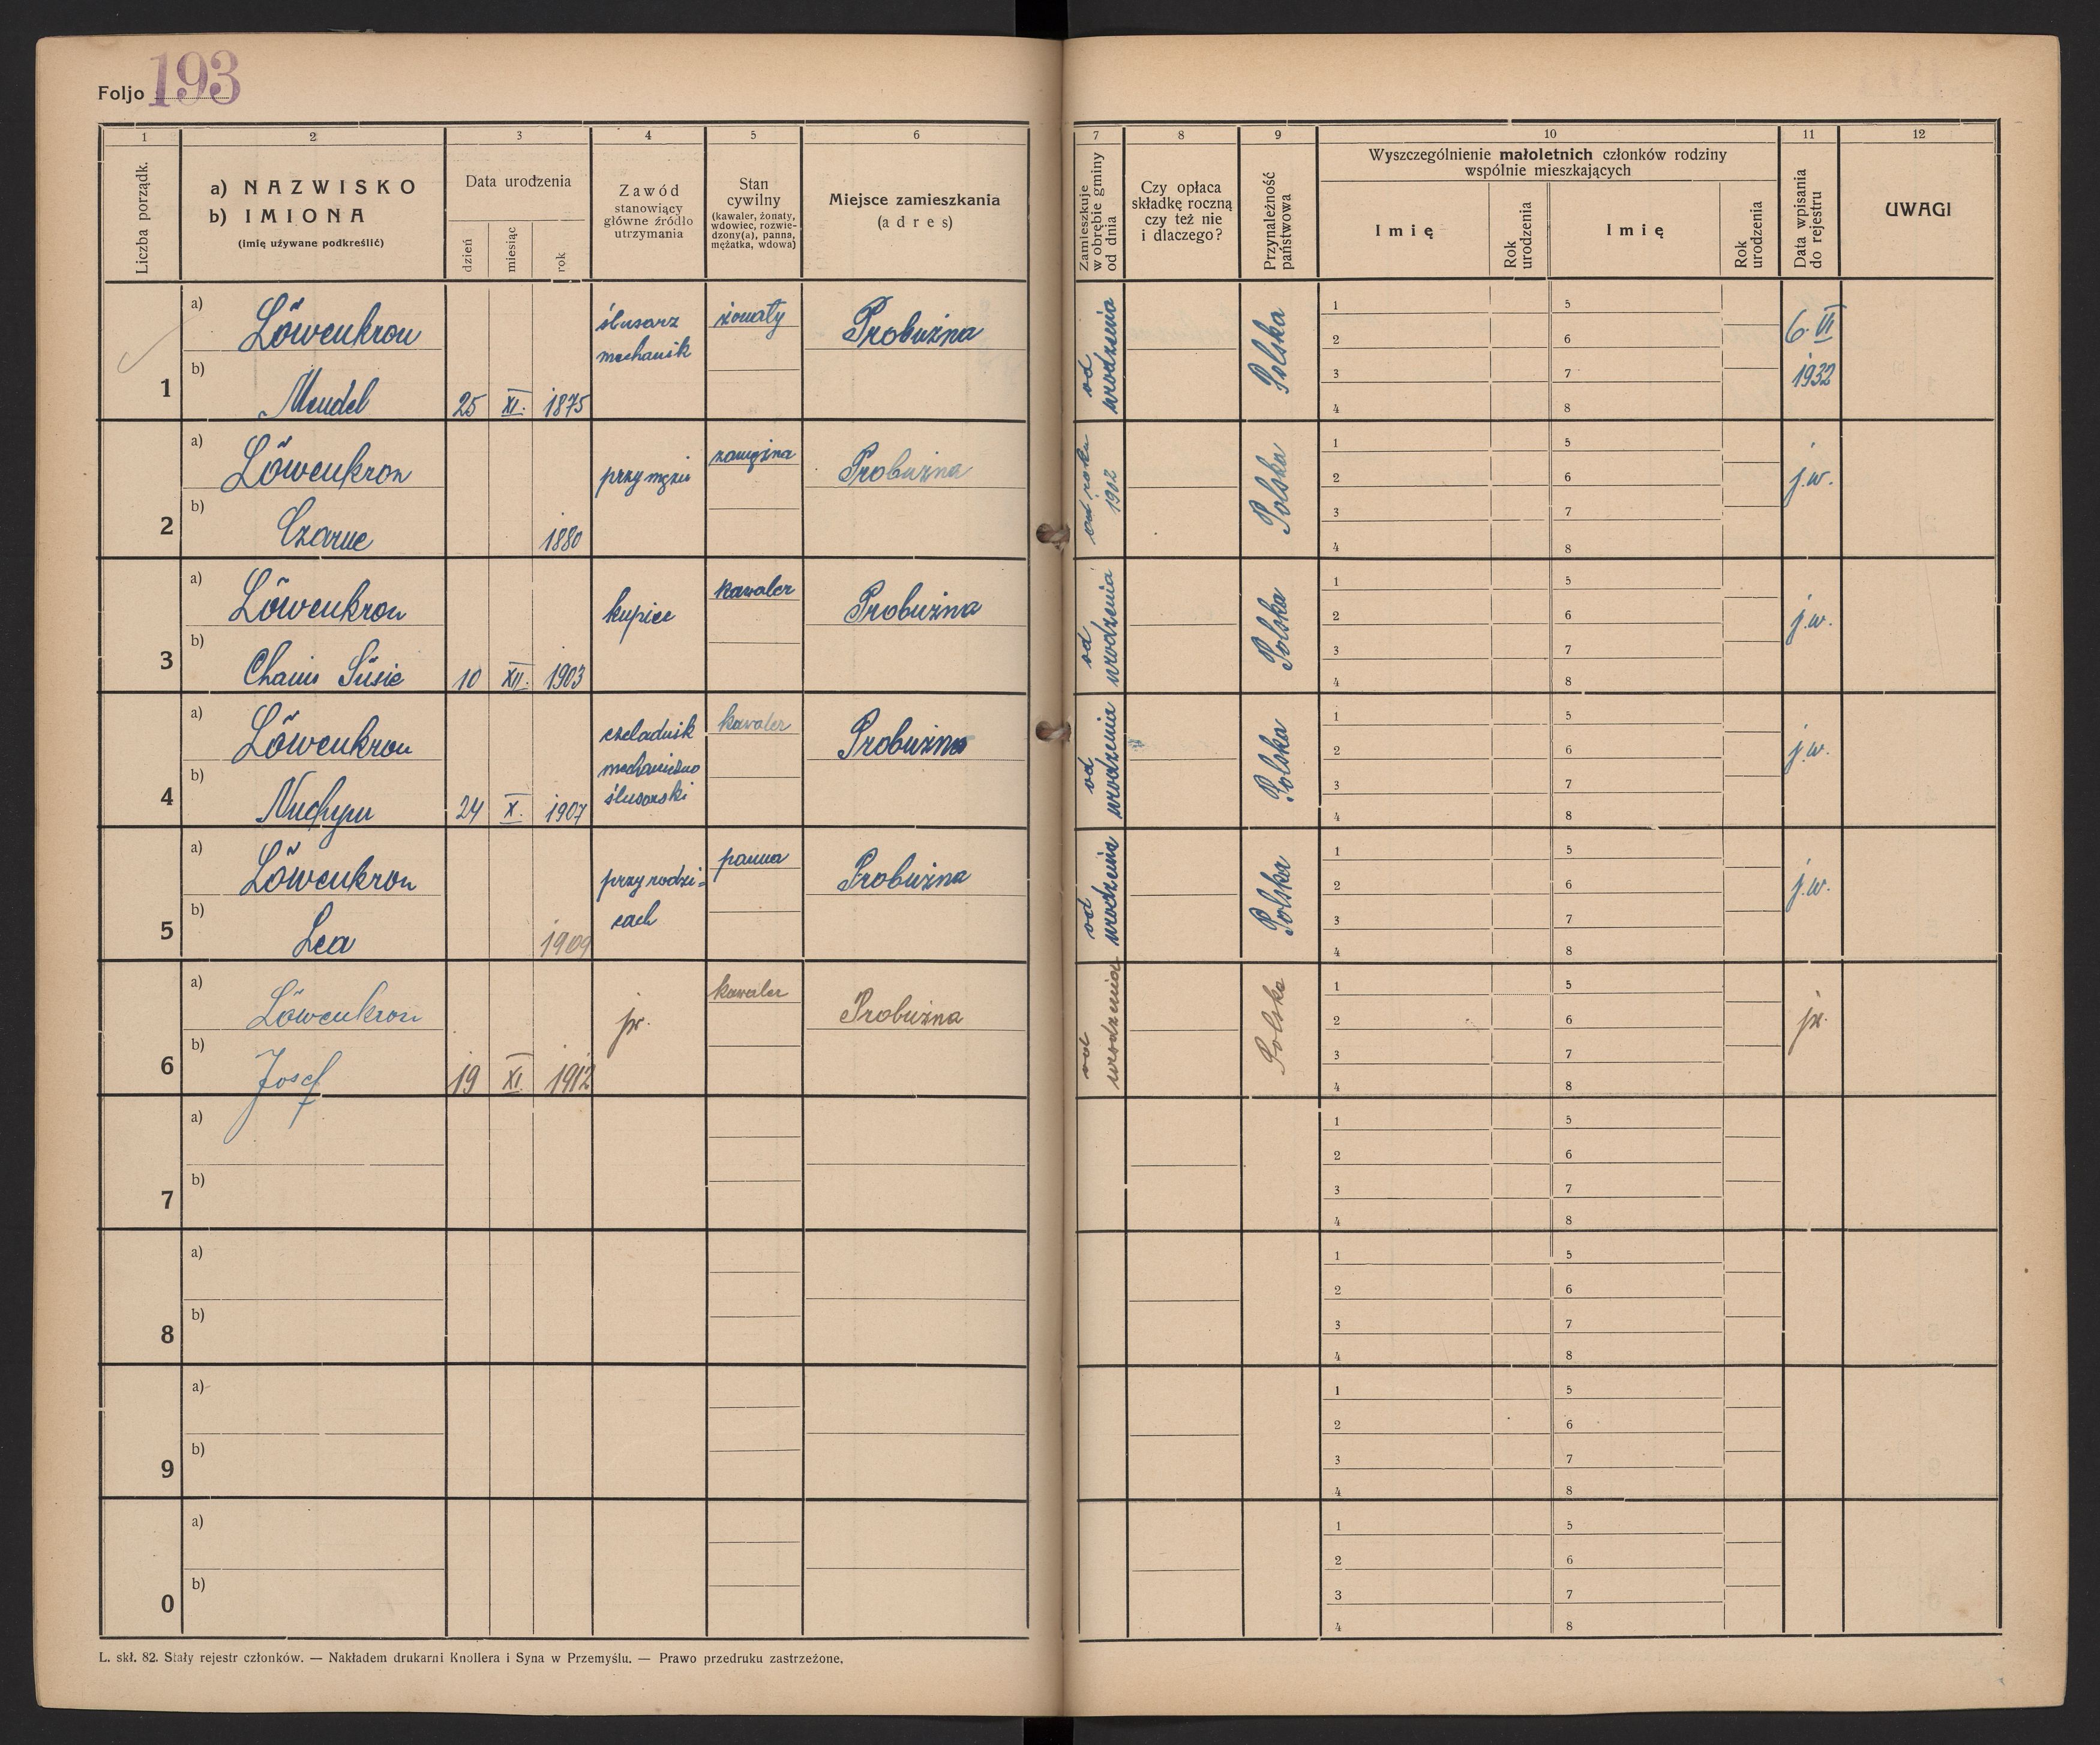 Foljo 193
1 2 3 4 5 6
Liczba porządk.
a) NAZWISKO
b) IMIONA
(imię używane podkreślić)
Data urodzenia
dzień miesiąc rok
Zawód
stanowiący
główne źródło
utrzymania
Stan
cywilny
(kawaler, żonaty,
wdowiec, rozwie-
dzony(a), panna,
mężatka, wdowa)
Miejsce zamieszkania
(adres)
7 8 9 10 11 12
Zamieszkuje
w obrębie gminy
od dnia
Czy opłaca
składkę roczną
czy też nie
i dlaczego?
Przynależność
państwowa
Wyszczególnienie małoletnich członków rodziny
wspólnie mieszkających
Imię
Rok
urodzenia
Imię
Rok
urodzenia
Data wpisania
do rejestru
UWAGI
1
a) Löwenkron
b) Mendel
25 XI. 1875
ślusarz
mechanik
żonaty
Probużna
od
urodzenia
Polska
1 5
2 6
3 7
4 8
6 VI
1932
2
a) Löwenkron
b) Czarne
1880
przy mężu
zamężna
Probużna
od roku
1902
Polska
1 5
2 6
3 7
4 8
j.w.
3
a) Löwenkron
b) Chaim Süsie
10 XII. 1903
kupiec
kawaler
Probużna
od
urodzenia
Polska
1 5
2 6
3 7
4 8
j.w.
4
a) Löwenkron
b) Nuchym
24 X. 1907
czeladnik
mechaniczno
ślusarski
kawaler
Probużna
od
urodzenia
Polska
1 5
2 6
3 7
4 8
j.w.
5
a) Löwenkron
b) Lea
1909
przy rodzi-
cach
panna
Probużna
od
urodzenia
Polska
1 5
2 6
3 7
4 8
j.w.
6
a) Löwenkron
b) Josef
19 XI 1912
jw.
kawaler
Probużna
od
urodzenia
Polska
1 5
2 6
3 7
4 8
jw.
7
a)
b)
1 5
2 6
3 7
4 8
8
a)
b)
1 5
2 6
3 7
4 8
9
a)
b)
1 5
2 6
3 7
4 8
0
a)
b)
1 5
2 6
3 7
4 8
L. skł. 82. Stały rejestr członków. — Nakładem drukarni Knollera i Syna w Przemyślu. — Prawo przedruku zastrzeżone.